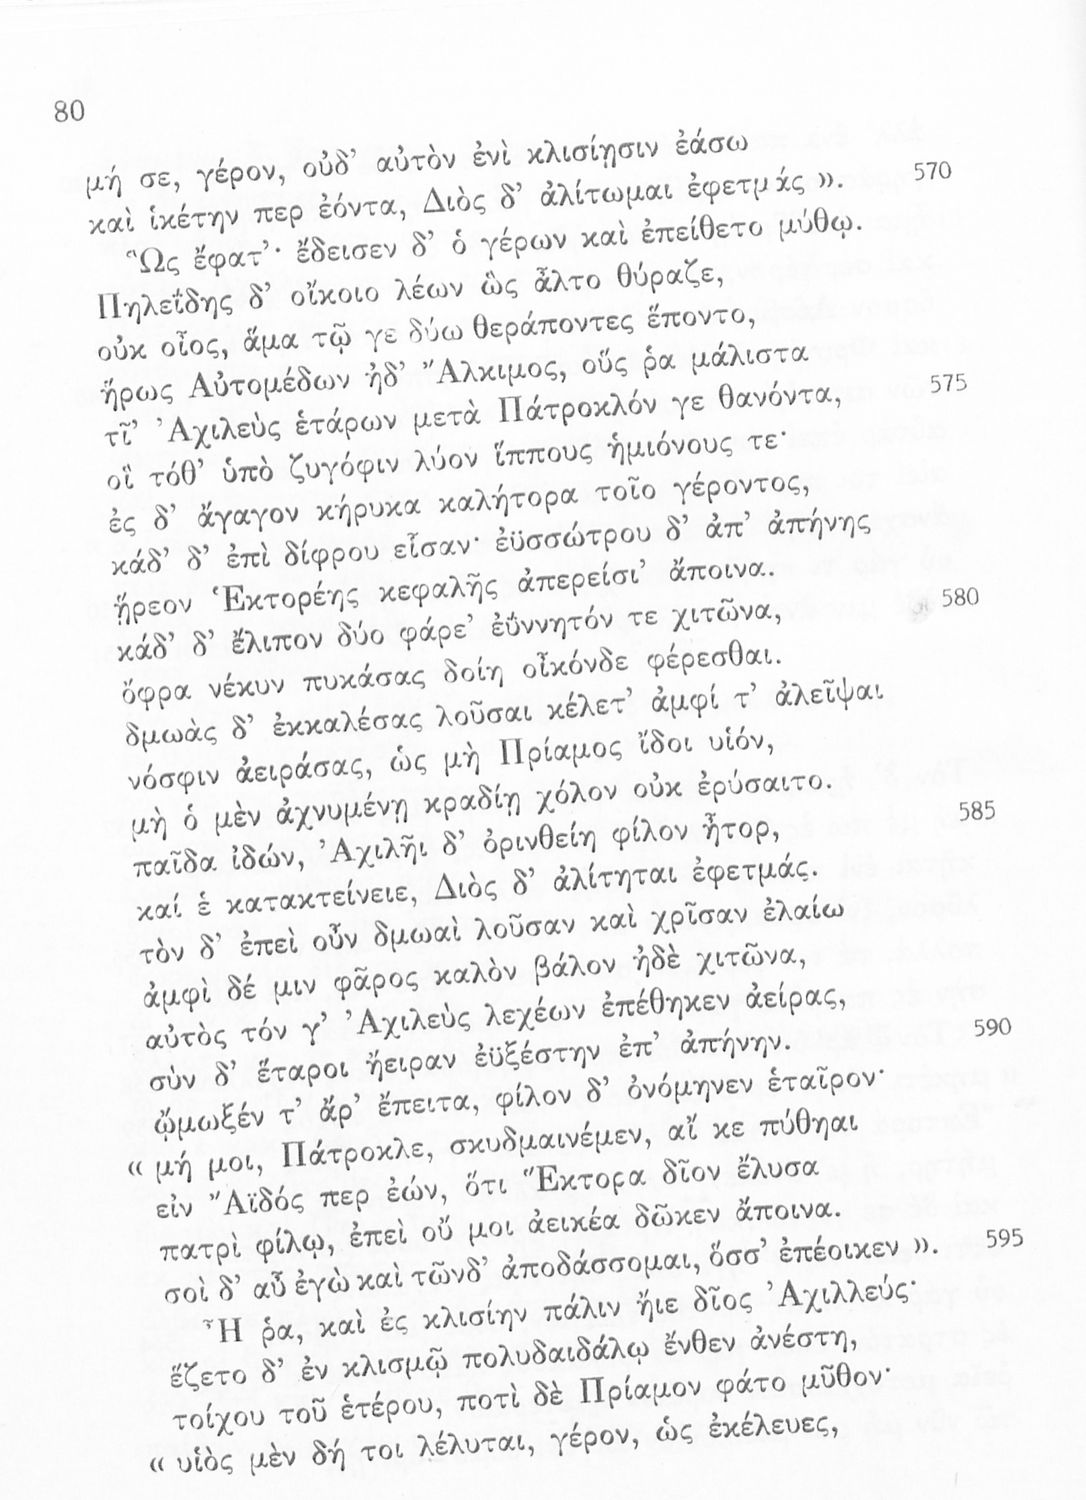 80
μή σε, γέρον, οὐδ’ αὐτὸν ἐνὶ κλισίῃσιν ἐάσω
καὶ ἱκέτην περ ἐόντα, Διὸς δ’ ἀλίτωμαι ἐφετμάς ». 570
Ὣς ἔφατ’· ἔδεισεν δ’ ὁ γέρων καὶ ἐπείθετο μύθῳ.
Πηλεΐδης δ’ οἴκοιο λέων ὣς ἆλτο θύραζε,
οὐκ οἶος, ἅμα τῷ γε δύω θεράποντες ἕποντο,
ἥρως Αὐτομέδων ἠδ’ Ἄλκιμος, οὕς ῥα μάλιστα
τῖ’ Ἀχιλεὺς ἑτάρων μετὰ Πάτροκλόν γε θανόντα, 575
οἳ τόθ’ ὑπὸ ζυγόφιν λύον ἵππους ἡμιόνους τε·
ἐς δ’ ἄγαγον κήρυκα καλήτορα τοῖο γέροντος,
κάδ’ δ’ ἐπὶ δίφρου εἷσαν· ἐϋσσώτρου δ’ ἀπ’ ἀπήνης
ᾕρεον Ἑκτορέης κεφαλῆς ἀπερείσι’ ἄποινα.
κάδ’ δ’ ἔλιπον δύο φάρε’ ἐΰννητόν τε χιτῶνα, 580
ὄφρα νέκυν πυκάσας δοίη οἶκόνδε φέρεσθαι.
δμωὰς δ’ ἐκκαλέσας λοῦσαι κέλετ’ ἀμφί τ’ ἀλεῖψαι
νόσφιν ἀειράσας, ὡς μὴ Πρίαμος ἴδοι υἱόν,
μὴ ὁ μὲν ἀχνυμένῃ κραδίῃ χόλον οὐκ ἐρύσαιτο.
παῖδα ἰδών, Ἀχιλῆι δ’ ὀρινθείη φίλον ἦτορ, 585
καί ἑ κατακτείνειε, Διὸς δ’ ἀλίτηται ἐφετμάς.
τὸν δ’ ἐπεὶ οὖν δμωαὶ λοῦσαν καὶ χρῖσαν ἐλαίω
ἀμφὶ δέ μιν φᾶρος καλὸν βάλον ἠδὲ χιτῶνα,
αὐτὸς τόν γ’ Ἀχιλεὺς λεχέων ἐπέθηκεν ἀείρας,
σὺν δ’ ἕταροι ἤειραν ἐϋξέστην ἐπ’ ἀπήνην. 590
ᾤμωξέν τ’ ἄρ’ ἔπειτα, φίλον δ’ ὀνόμηνεν ἑταῖρον·
« μή μοι, Πάτροκλε, σκυδμαινέμεν, αἴ κε πύθηαι
εἰν Ἄϊδός περ ἐών, ὅτι Ἕκτορα δῖον ἔλυσα
πατρὶ φίλῳ, ἐπεὶ οὔ μοι ἀεικέα δῶκεν ἄποινα.
σοὶ δ’ αὖ ἐγὼ καὶ τῶνδ’ ἀποδάσσομαι, ὅσσ’ ἐπέοικεν ». 595
Ἦ ῥα, καὶ ἐς κλισίην πάλιν ἤιε δῖος Ἀχιλλεύς·
ἕζετο δ’ ἐν κλισμῷ πολυδαιδάλῳ ἔνθεν ἀνέστη,
τοίχου τοῦ ἑτέρου, ποτὶ δὲ Πρίαμον φάτο μῦθον·
« υἱὸς μὲν δή τοι λέλυται, γέρον, ὡς ἐκέλευες,